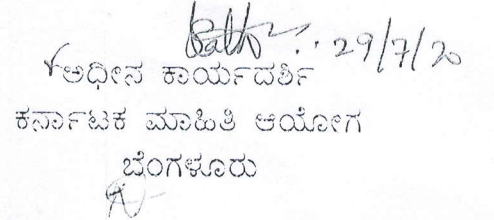 29/7/20
ಅಧೀನ ಕಾರ್ಯದರ್ಶಿ
ಕರ್ನಾಟಕ ಮಾಹಿತಿ ಆಯೋಗ
ಬೆಂಗಳೂರು